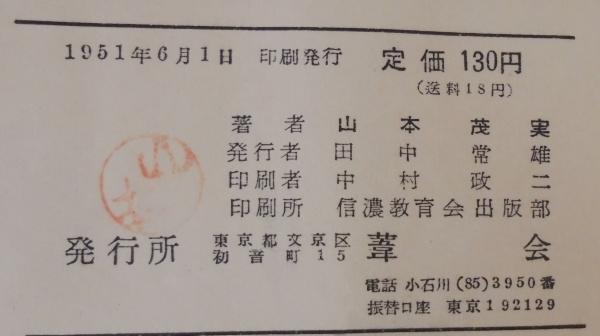 1951年6月1日 印刷発行 定価 130円
(送料18円)
著者 山本茂実
発行者 田中常雄
印刷者 中村政二
印刷所 信濃教育会出版部
発行所 東京都文京区初音町15 葦会
電話 小石川 (85) 3950番
振替口座 東京192129
山本